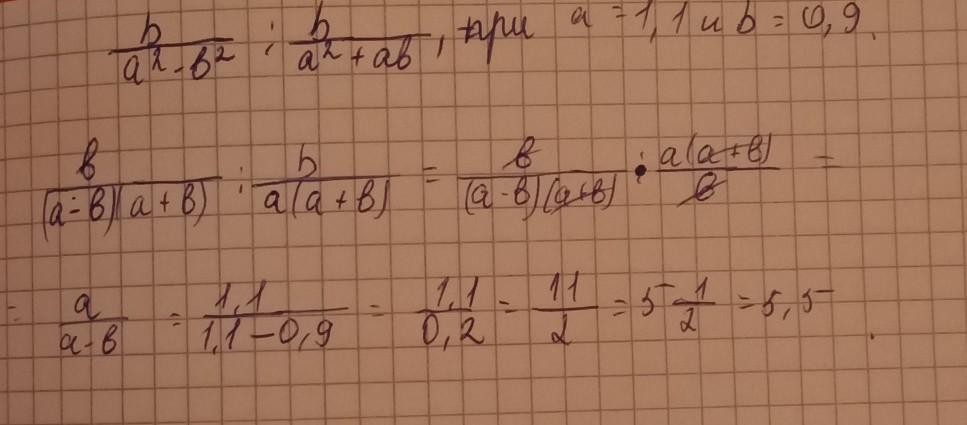 b/(a²-b²) : b/(a²+ab), при a=1,1 и b=0,9.
b/((a-b)(a+b)) : b/(a(a+b)) = b/((a-b)(a+b)) · a(a+b)/b =
= a/(a-b) = 1,1/(1,1-0,9) = 1,1/0,2 = 11/2 = 5 1/2 = 5,5.